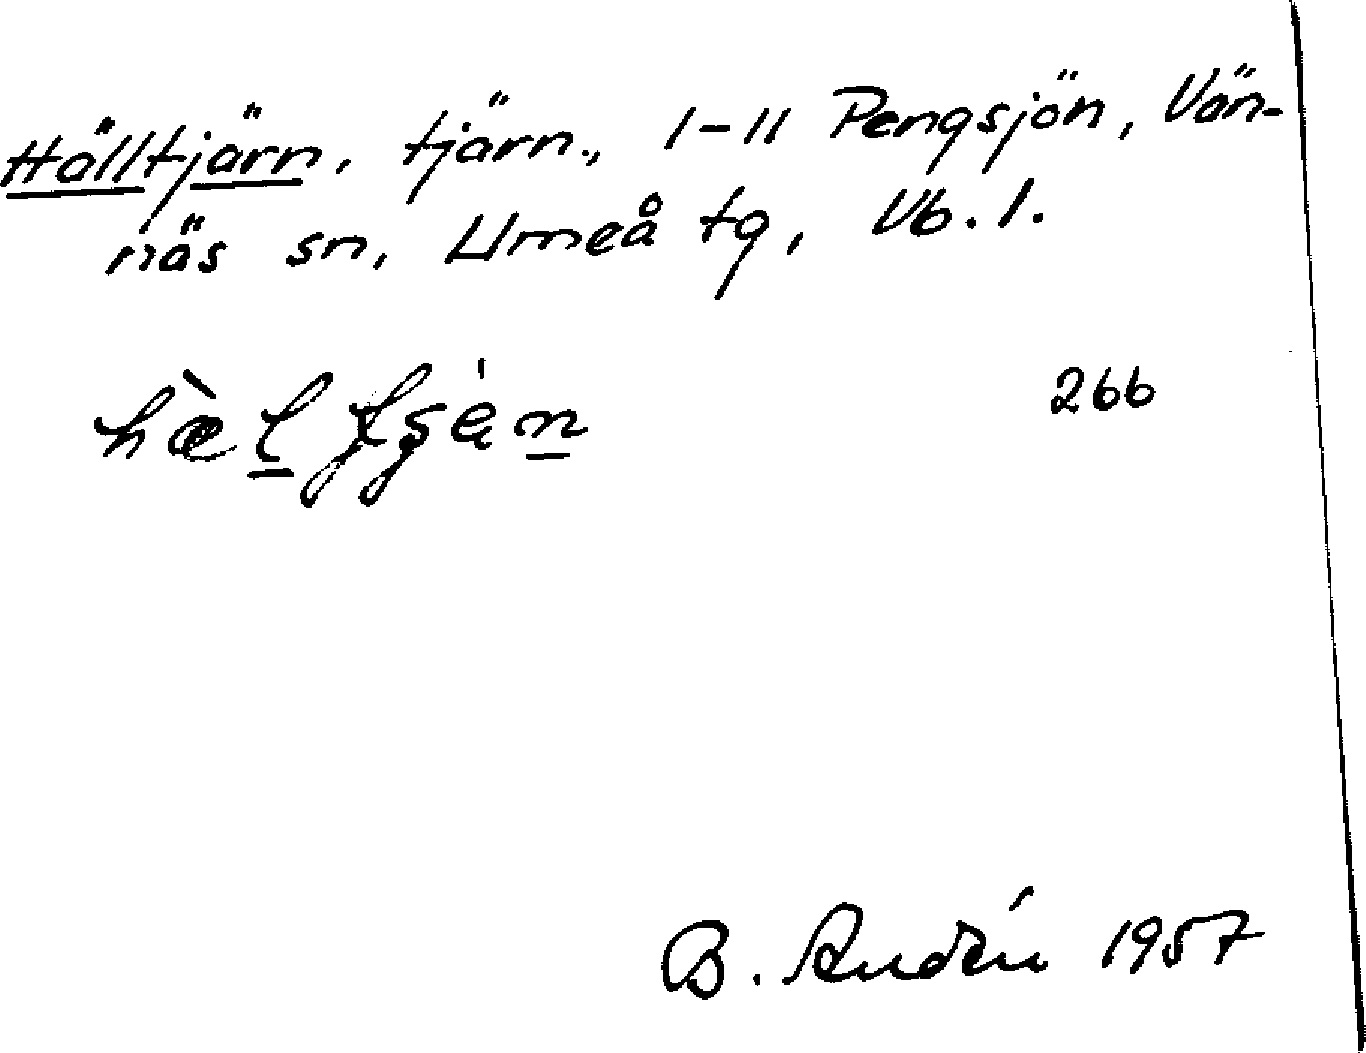 Hälltjärn, tjärn., 1-11 Pengsjön, Vän-
näs sn, Umeå tg, Vb. l.
266
B. Andén 1957